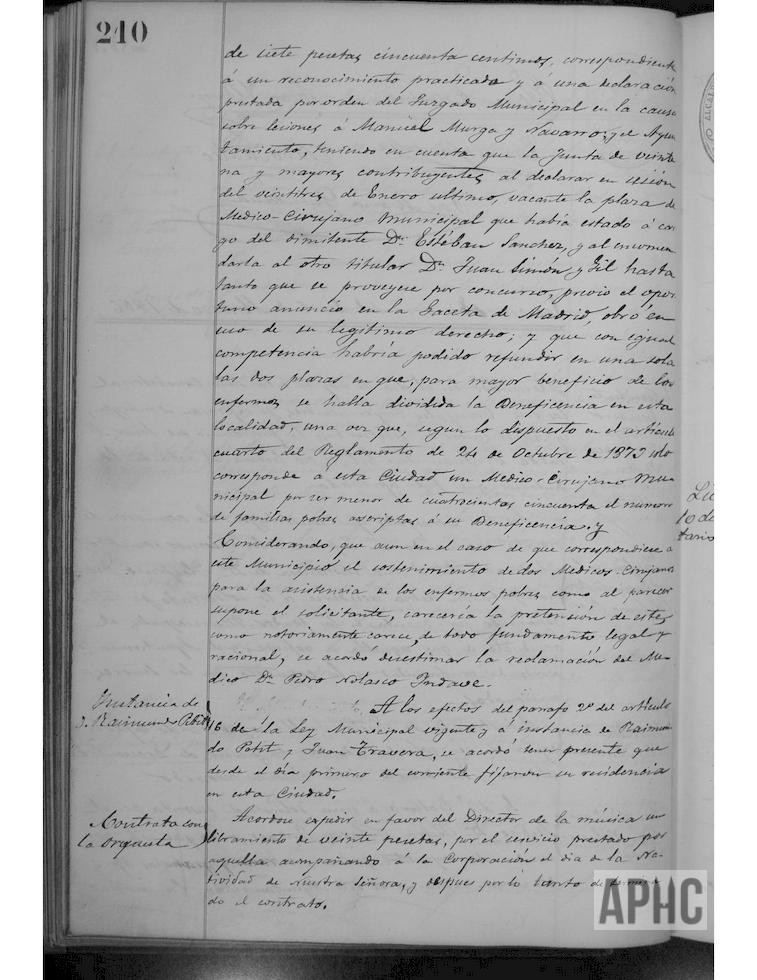 210
de siete pesetas cincuenta centimos, correspondiente
á un reconocimiento practicado y á una declaración
prestada por orden del Juzgado Municipal en la causa
sobre lesiones á Manuel Murga y Navarro; y el Ayun
tamiento, teniendo en cuenta que la Junta de veinte
na y mayores contribuyentes al declarar en sesión
del veintitres de Enero ultimo, vacante la plaza de
Medico-Cirujano Municipal que habia estado á car
go del dimitente Dn. Estéban Sanchez, y al encomen
darla al otro titular Dn. Juan Simón y Gil hasta
tanto que se proveyese por concurso, previo el opor
tuno anuncio en la Gaceta de Madrid, obró en
uso de su legitimo derecho; y que con igual
competencia habria podido refundir en una sola
las dos plazas en que, para mayor beneficio de los
enfermos, se halla dividida la Beneficencia en esta
localidad, una vez que, segun lo dispuesto en el articulo
cuarto del Reglamento de 24 de Octubre de 1873 solo
corresponde a esta Ciudad un Medico-Cirujano Mu-
nicipal por ser menor de cuatrocientas cincuenta el numero
de familias pobres adscriptas á su Beneficencia. y
Considerando, que aun en el caso de que correspondiese a
este Municipio el sostenimiento de dos Medicos-Cirujanos
para la asistencia de los enfermos pobres como al parecer
supone el solicitante, careceria la pretensión de este,
como notoriamente carece, de todo fundamento legal y
racional, se acordó desestimar la reclamación del Me-
dico Dn. Pedro Nolasco Indave.
Instancia de
D. Raimundo Petit
A los efectos del parrafo 2º del articulo
16 de la Ley Municipal vigente y á instancia de Raimun
do Petit y Juan Travera, se acordó tener presente que
desde el dia primero del corriente fijaron su residencia
en esta Ciudad.
Contrata con
la orquesta
Acordose expedir en favor del Director de la música un
libramiento de veinte pesetas, por el servicio prestado por
aquella acompañando á la Corporación el dia de la Na-
tividad de Nuestra Señora, y despues por lo tanto de
do el contrato.
10 de
tario
ALCAL
APHC